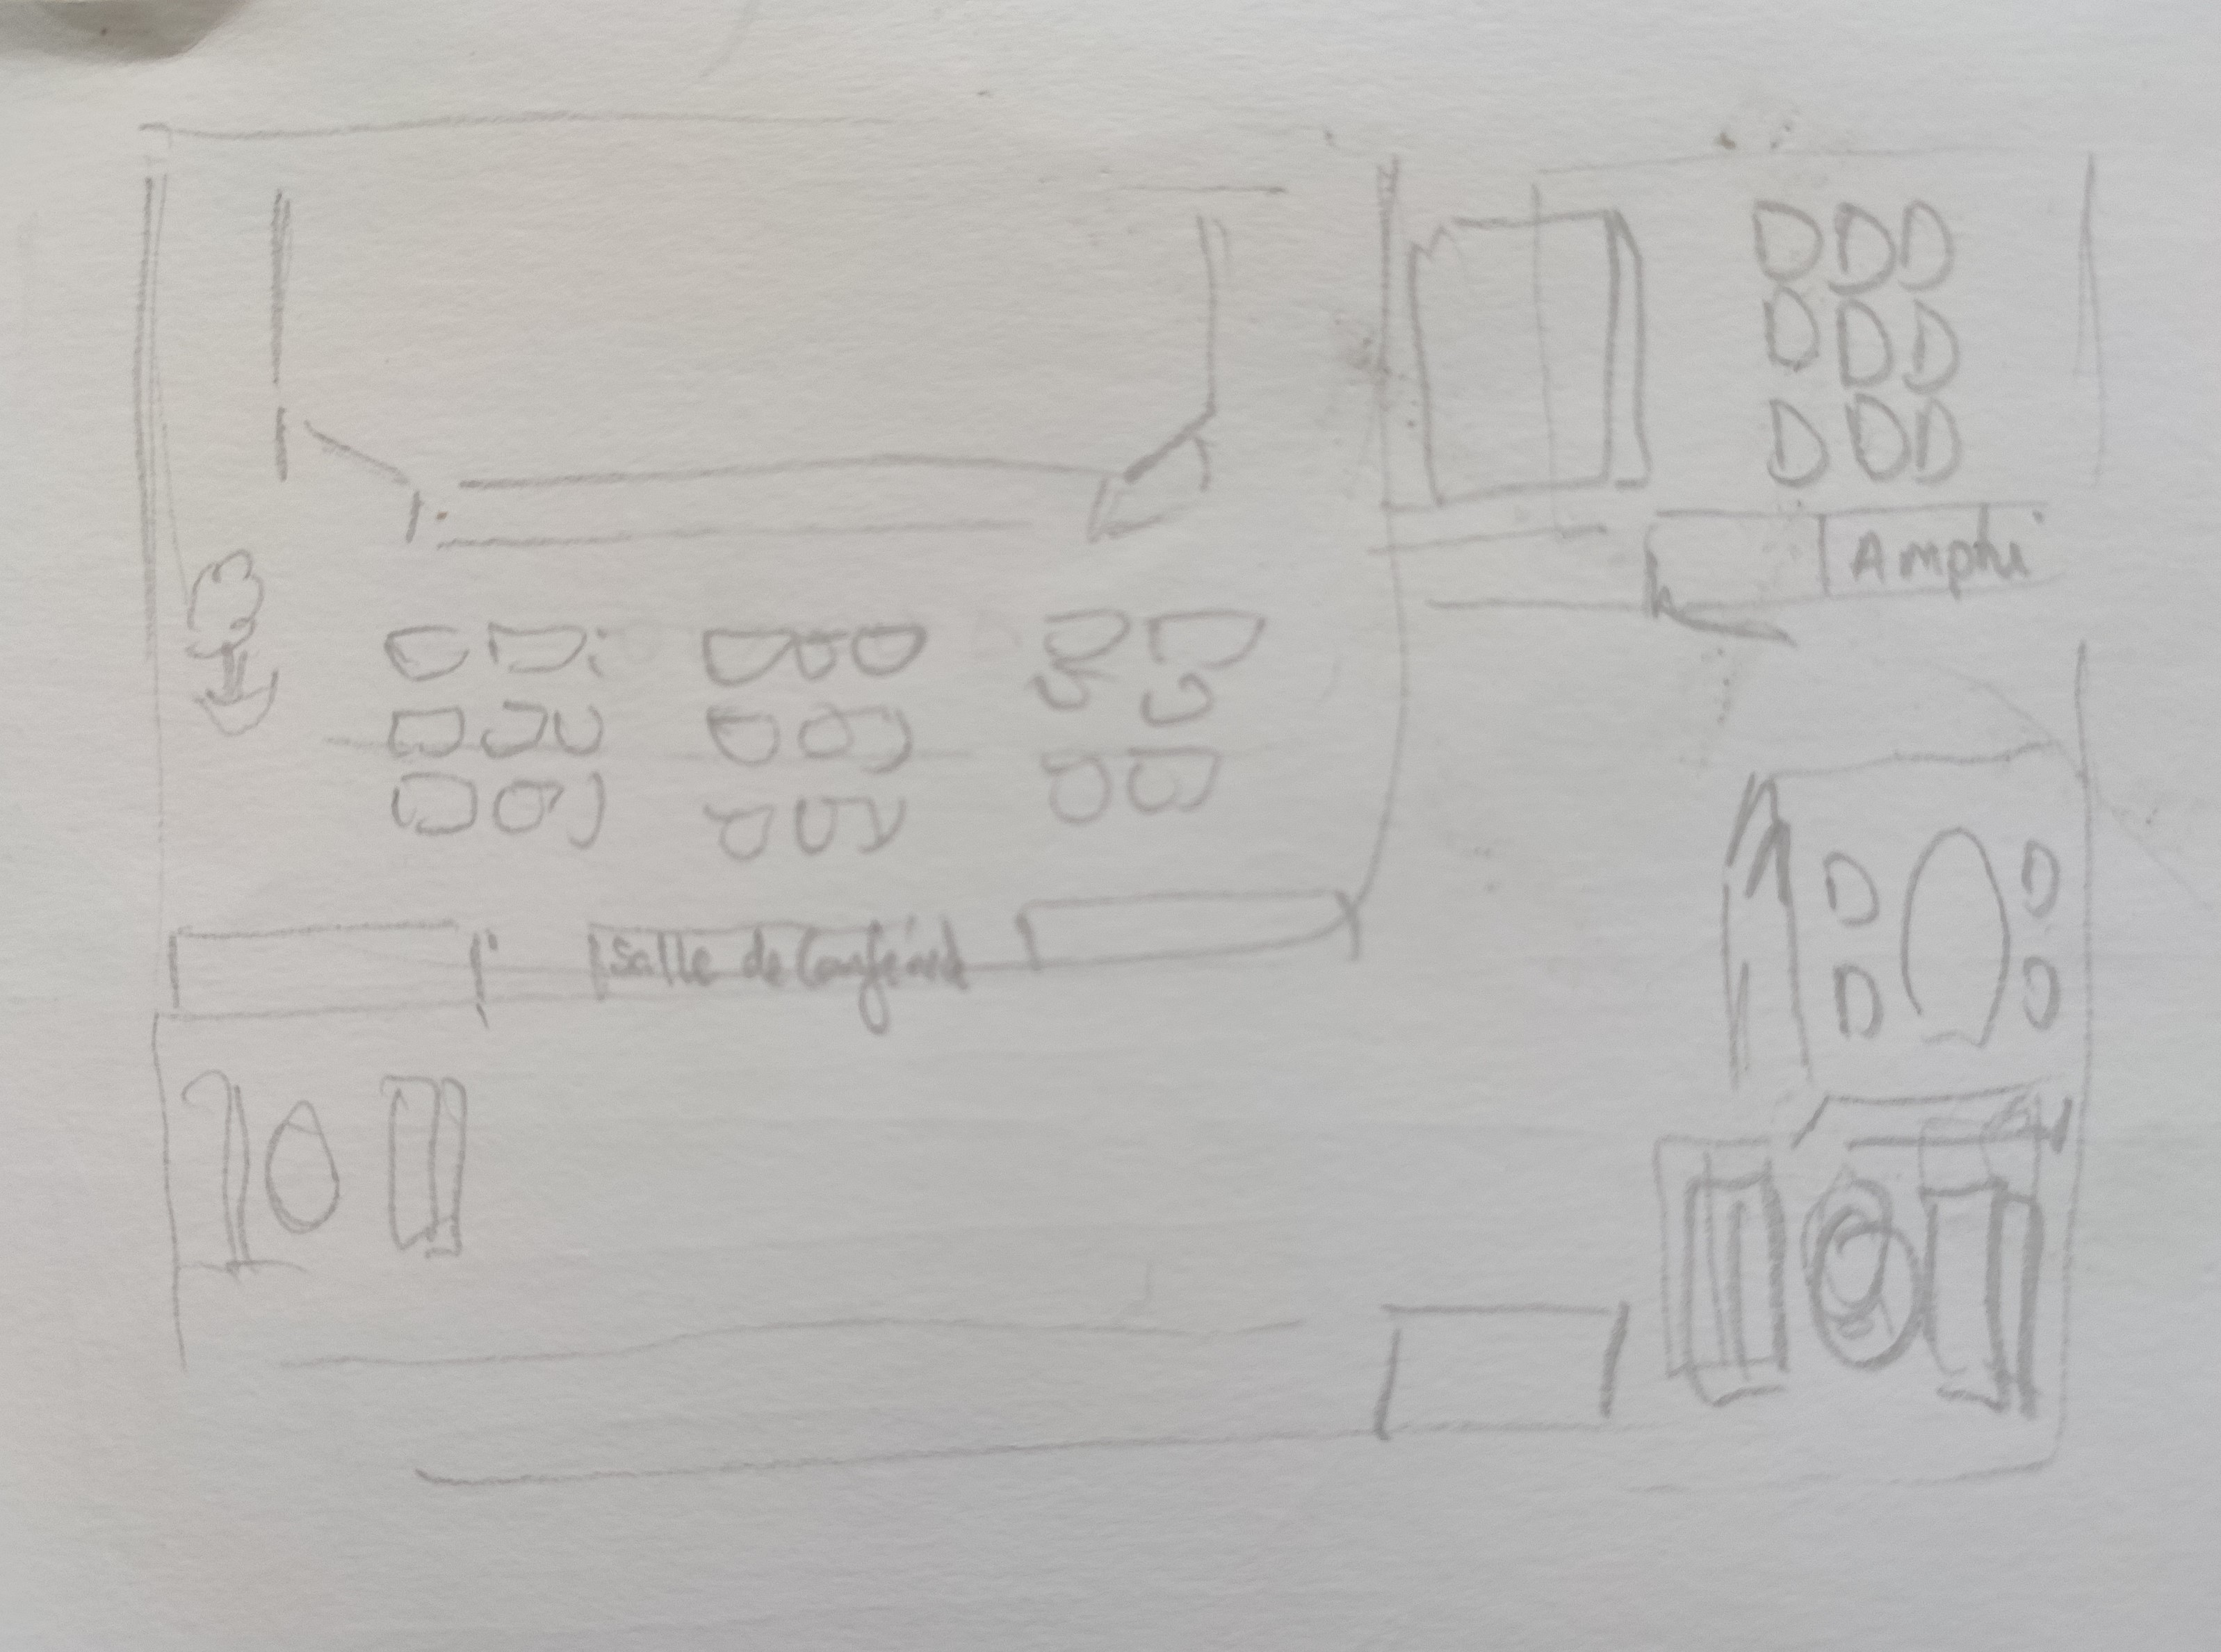 Amphi
Salle de Conférence